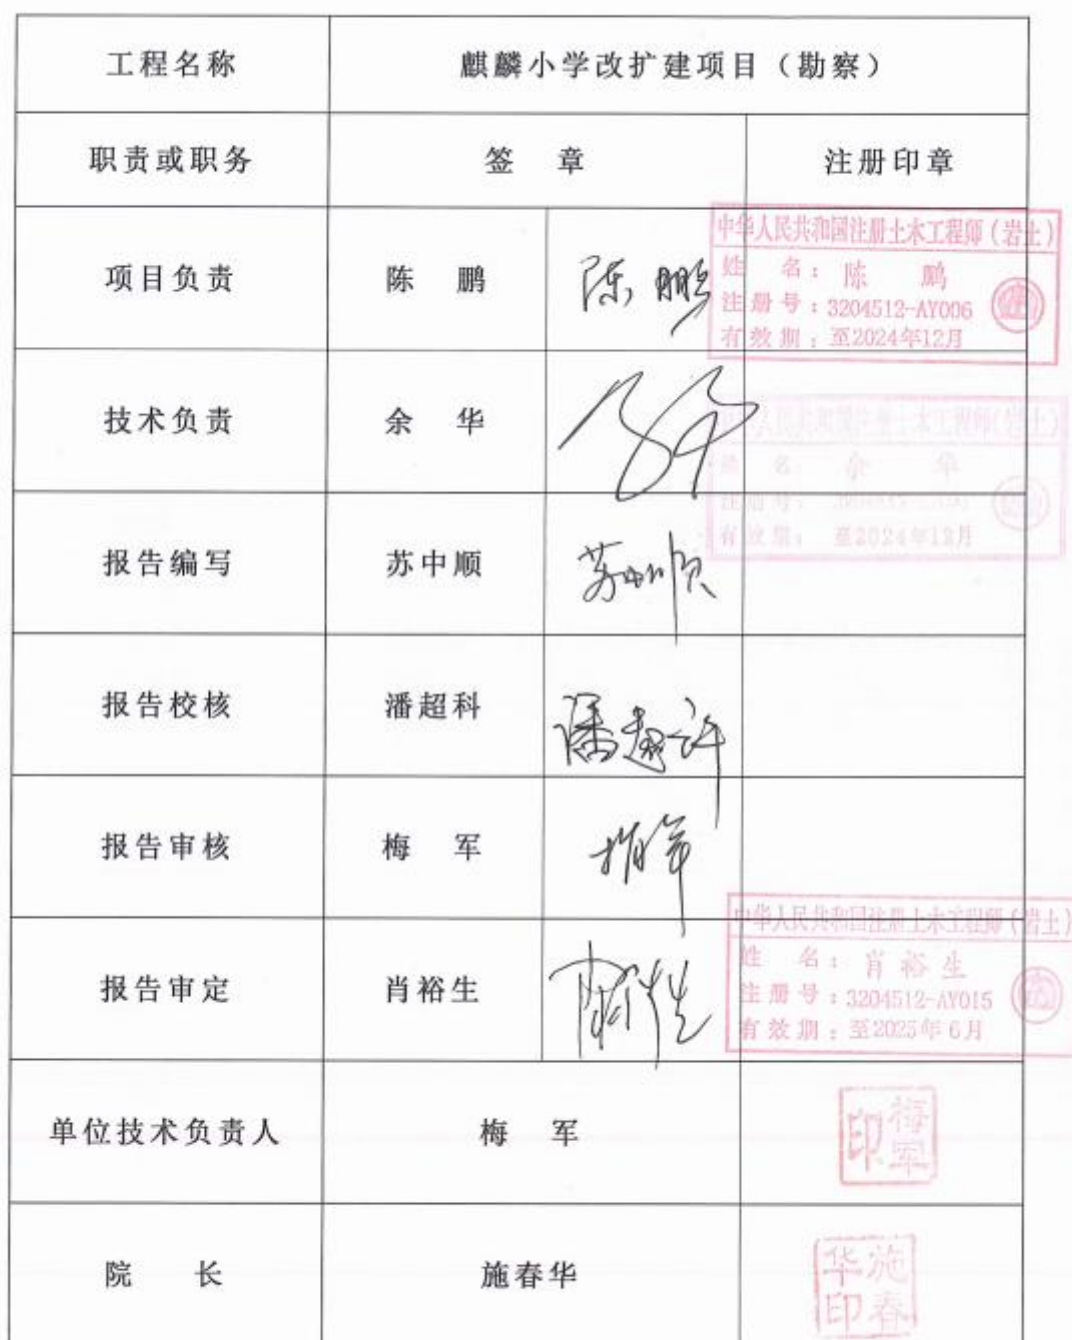 工程名称 麒麟小学改扩建项目（勘察）
职责或职务 签 章 注册印章
项目负责 陈 鹏 陈鹏
中华人民共和国注册土木工程师（岩土）
姓 名：陈 鹏
注册号：3204512-AY006
有效期：至2024年12月
技术负责 余 华
中华人民共和国注册土木工程师(岩土)
姓 名：余 华
注册号：
有效期：至2024年12月
报告编写 苏中顺 苏中顺
报告校核 潘超科
报告审核 梅 军 梅军
中华人民共和国注册土木工程师（岩土）
报告审定 肖裕生
姓 名：肖裕生
注册号：3204512-AY015
有效期：至2025年6月
单位技术负责人 梅 军 梅军印
院 长 施春华 施春华印